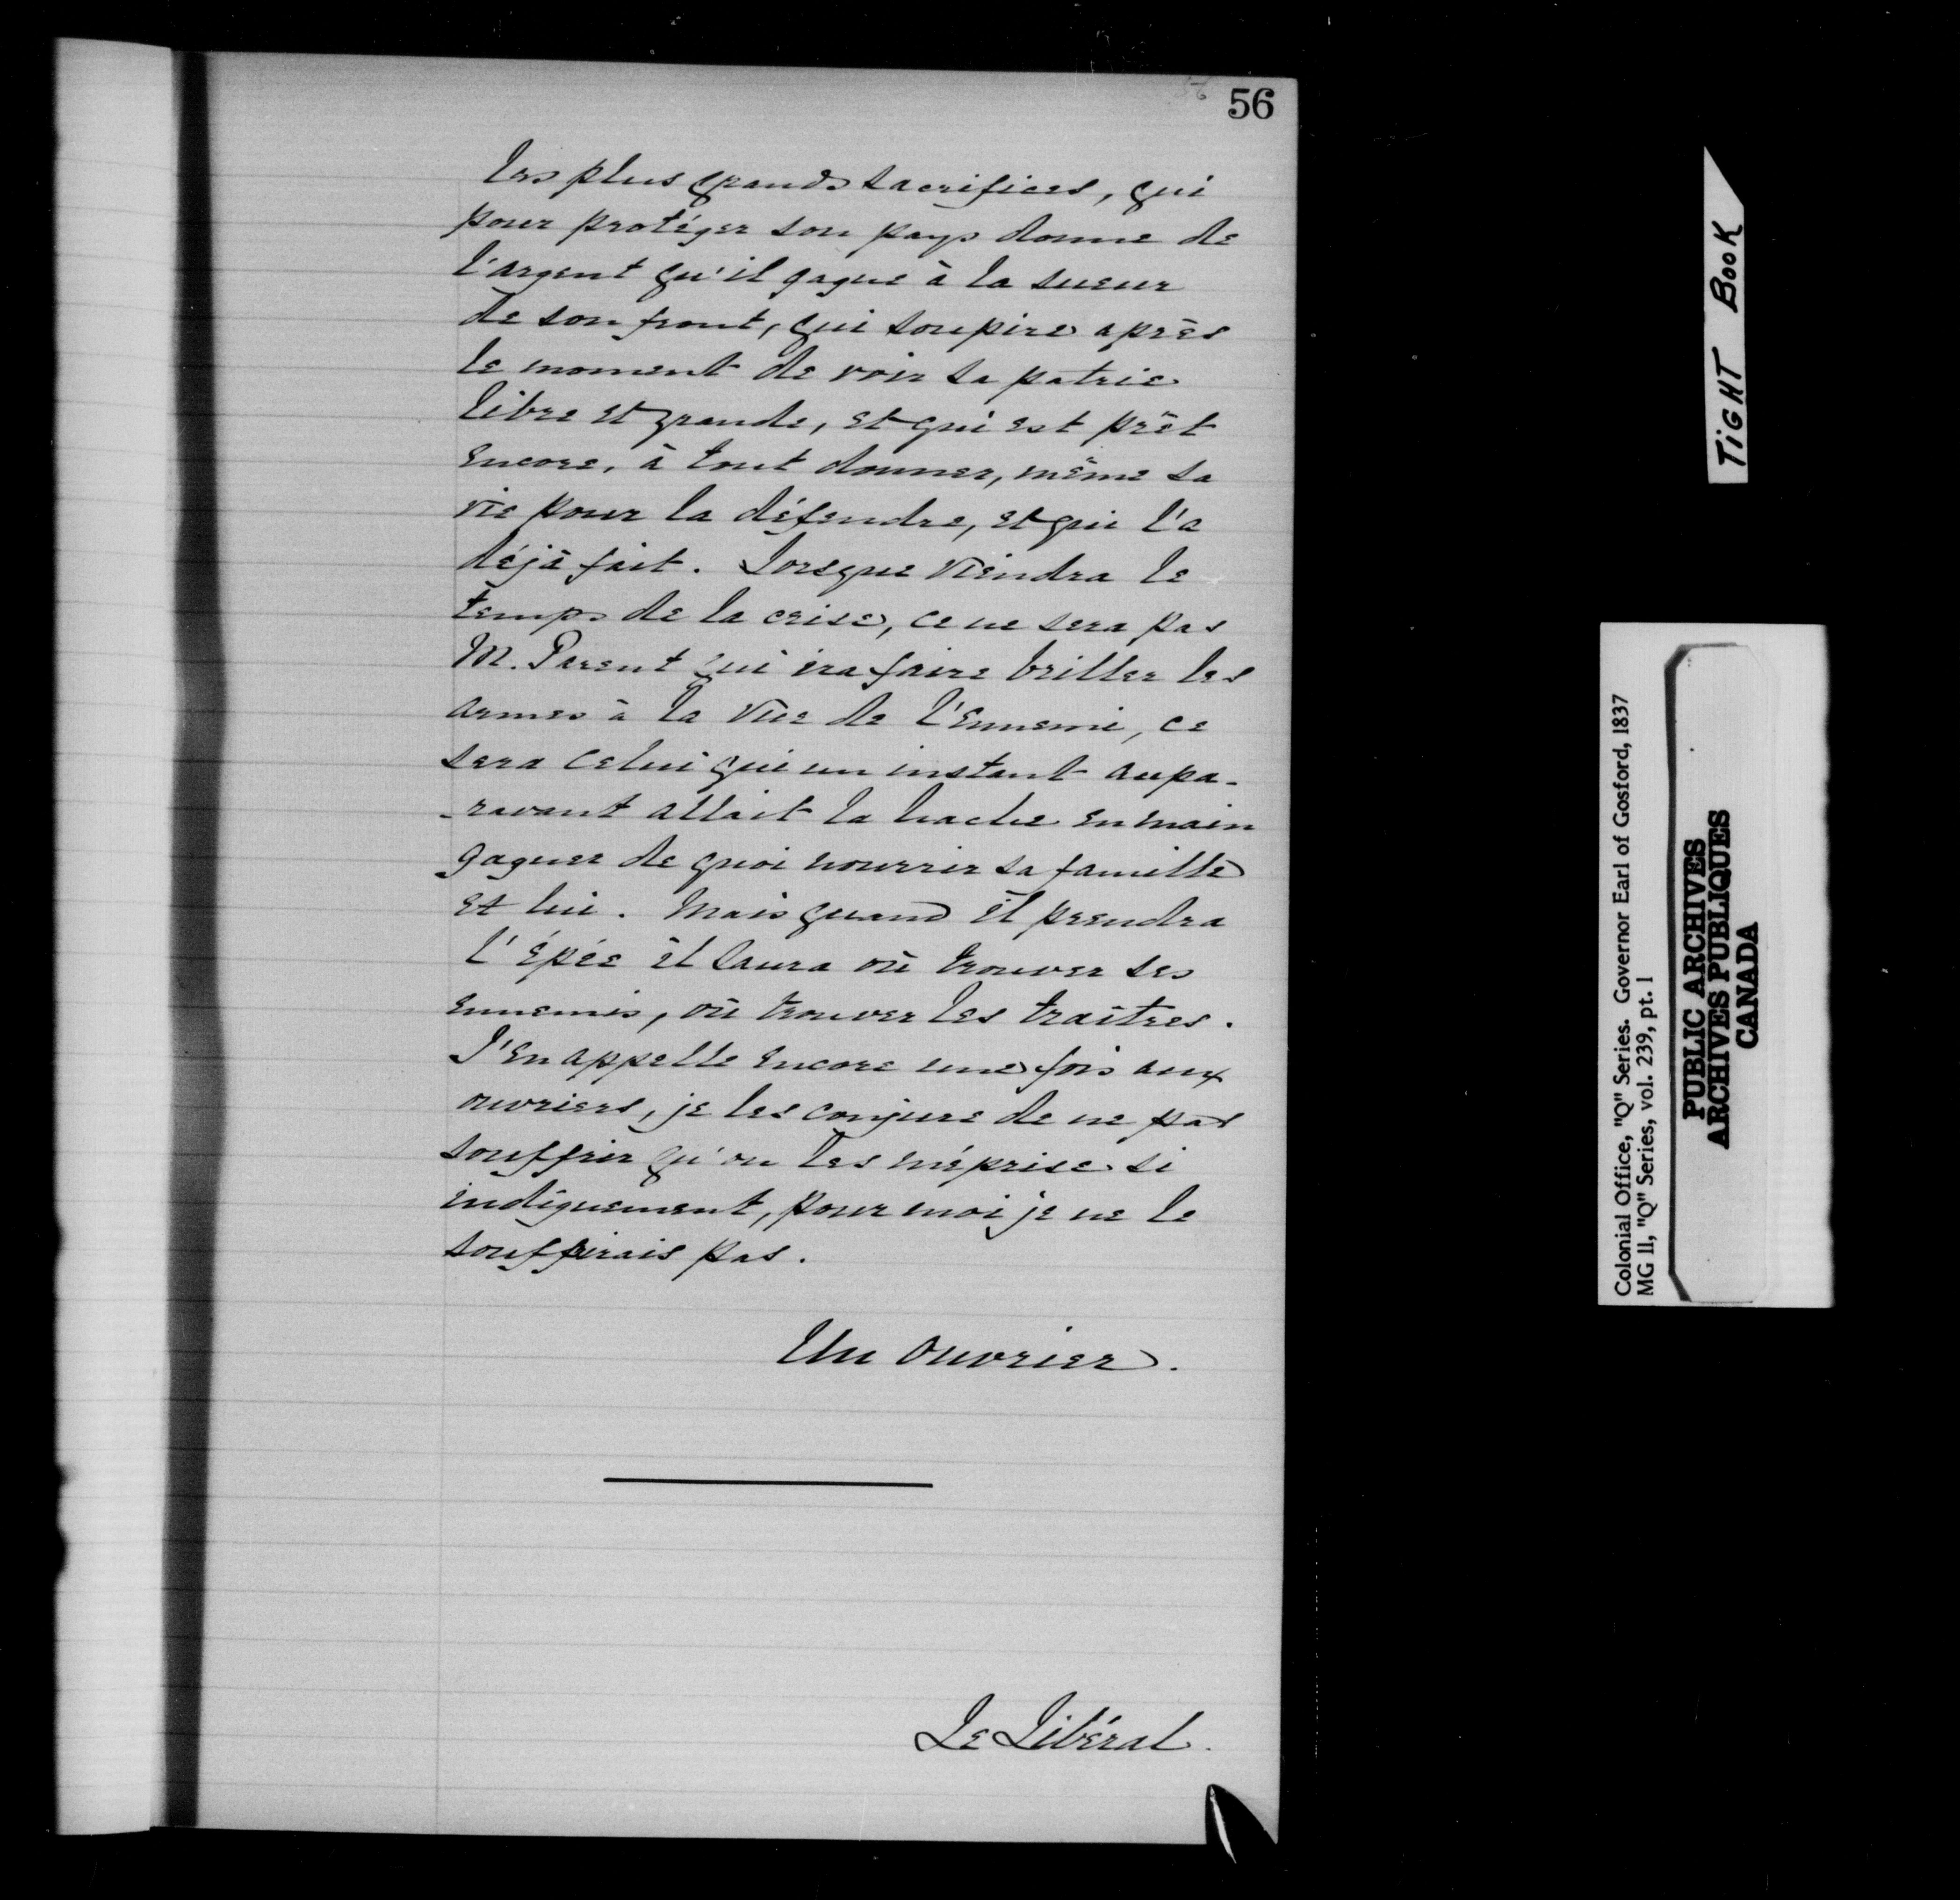 56
56
les plus grands sacrifices, qui
pour protéger son pays donne de
l'argent qu'il gagne à la sueur
de son front, qui soupire après
le moment de voir sa patrie
libre et grande, et qui est prêt
encore, à tout donner, même sa
vie pour la défendre, et qui l'a
déjà fait. Lorsque viendra le
temps de la crise, ce ne sera pas
M. Parent qui ira faire briller les
armes à la vue de l'ennemi, ce
sera celui qui un instant aupa-
-ravant allait la hache en main
gagner de quoi nourrir sa famille
et lui. Mais quand il prendra
l'épée il saura où trouver ses
ennemis, où trouver les traîtres.
J'en appelle encore une fois aux
ouvriers, je les conjure de ne pas
souffrir qu'on les méprise si
indignement, pour moi je ne le
souffrirais pas.
Un Ouvrier.
Le Libéral.
TIGHT BOOK
Colonial Office, "Q" Series. Governor Earl of Gosford, 1837
MG 11, "Q" Series, vol. 239, pt. 1
PUBLIC ARCHIVES
ARCHIVES PUBLIQUES
CANADA